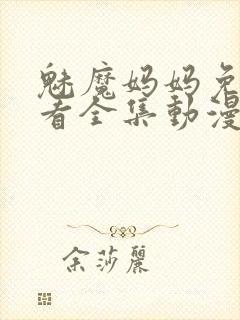 魅魔妈妈免
看全集動漫
余莎麗